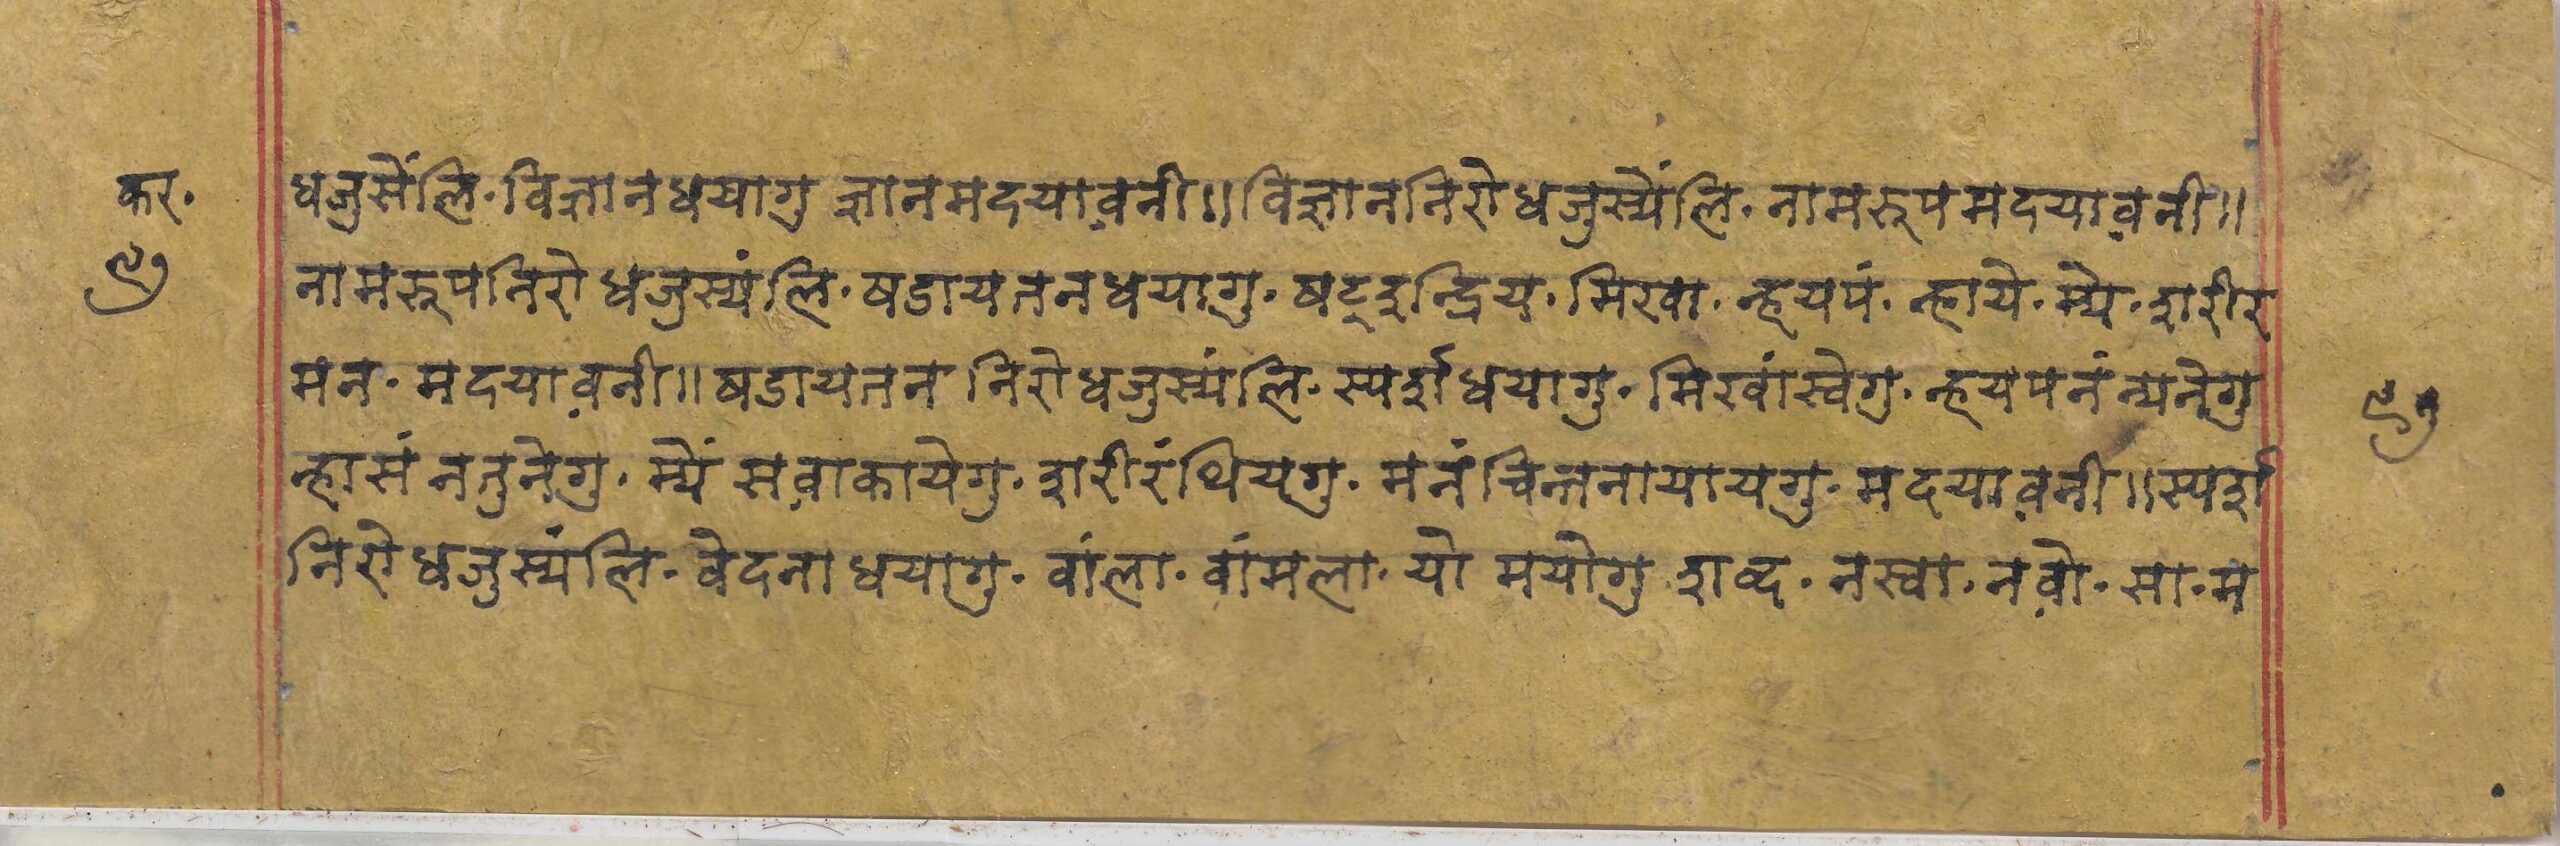 कर.
९७
धजुसेंलि. विज्ञानधयागु ज्ञानमदयाव़नी॥ विज्ञाननिरोधजुस्यंलि. नामरूपमदयाव़नी॥
नामरूपनिरोधजुस्यंलि. षडायतनधयागु. षट्इन्द्रिय. मिखा. न्ह्यपं. न्हाये. म्ये. शरीर
मन. मदयाव़नी॥ षडायतन निरोधजुस्यंलि. स्पर्शधयागु. मिखांस्वेगु. न्ह्यपनंन्यनेगु
न्हासंनतुनेगु. म्यें सव़ाकायेगु. शरीरंथियगु. मनंचिन्तनायायगु. मदयाव़नी॥ स्पर्श
निरोधजुस्यंलि. वेदनाधयागु. वांला. वांमला. यो मयोगु शब्द. नस्वा. नव़ो. सा. म
९७